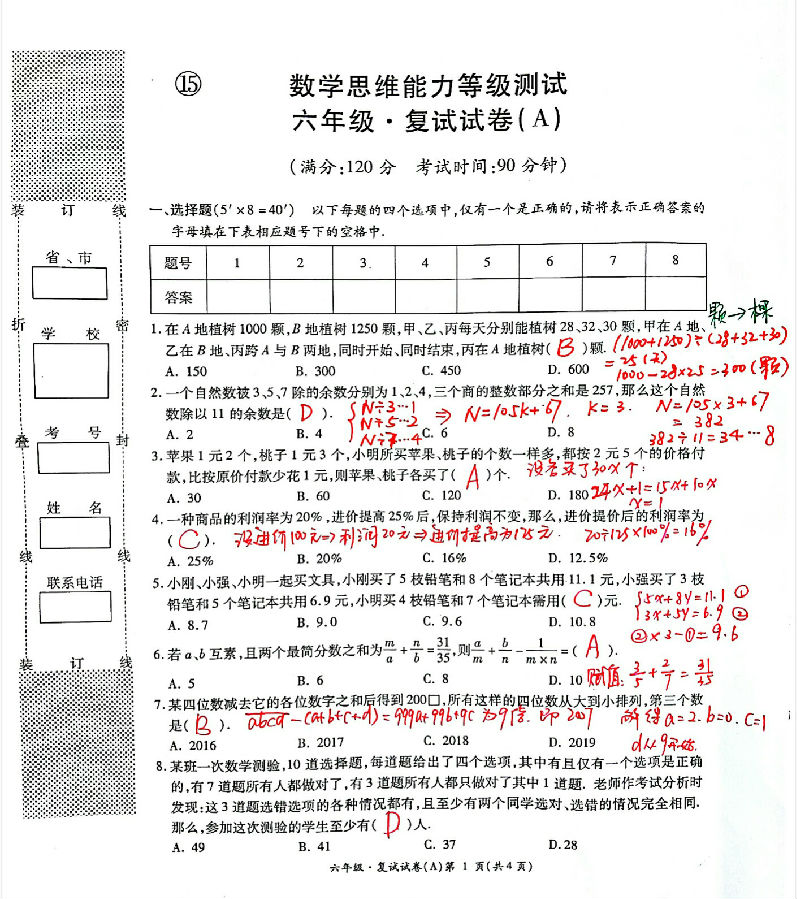 ⑮
数学思维能力等级测试
六年级·复试试卷(A)
(满分:120分 考试时间:90分钟)
装 订 线
省、市
折 密
学 校
叠 封
考 号
姓 名
线 线
联系电话
装 订 线
一、选择题(5′×8=40′) 以下每题的四个选项中,仅有一个是正确的,请将表示正确答案的
字母填在下表相应题号下的空格中.
题号 1 2 3. 4 5 6 7 8
答案
颗→棵
1.在A地植树1000颗,B地植树1250颗,甲、乙、丙每天分别能植树28、32、30颗,甲在A地、
乙在B地、丙跨A与B两地,同时开始、同时结束,丙在A地植树( B )颗.
(1000+1250)÷(28+32+30)
=25(天)
1000-28×25=300(颗)
A. 150 B. 300 C. 450 D. 600
2.一个自然数被3、5、7除的余数分别为1、2、4,三个商的整数部分之和是257,那么这个自然
数除以11的余数是( D ).
N÷3…1
N÷5…2
N÷7…4
⇒ N=105k+67. K=3. N=105×3+67
=382
382÷11=34…8
A. 2 B. 4 C. 6 D. 8
3.苹果1元2个,桃子1元3个,小明所买苹果、桃子的个数一样多,都按2元5个的价格付
款,比按原价付款少花1元,则苹果、桃子各买了( A )个.
设各买了30x个:
24x+1=15x+10x
x=1
A. 30 B. 60 C. 120 D. 180
4.一种商品的利润率为20%,进价提高25%后,保持利润不变,那么,进价提价后的利润率为
( C ). 设进价100元⇒利润20元⇒进价提高为125元. 20÷125×100%=16%
A. 25% B. 20% C. 16% D. 12.5%
5.小刚、小强、小明一起买文具,小刚买了5枝铅笔和8个笔记本共用11.1元,小强买了3枝
铅笔和5个笔记本共用6.9元,小明买4枝铅笔和7个笔记本需用( C )元.
5x+8y=11.1 ①
3x+5y=6.9 ②
②×3-①=9.6
A. 8.7 B. 9.0 C. 9.6 D. 10.8
6.若a、b互素,且两个最简分数之和为m/a+n/b=31/35,则a/m+b/n-1/(m×n)=( A ).
赋值: 3/5+2/7=31/35
A. 5 B. 6 C. 8 D. 10
7.某四位数减去它的各位数字之和后得到200□,所有这样的四位数从大到小排列,第三个数
是( B ). abcd-(a+b+c+d)=999a+99b+9c为9倍. 即2007 解得a=2.b=0.c=1
A. 2016 B. 2017 C. 2018 D. 2019
8.某班一次数学测验,10道选择题,每道题给出了四个选项,其中有且仅有一个选项是正确
的,有7道题所有人都做对了,有3道题所有人都只做对了其中1道题. 老师作考试分析时
发现:这3道题选错选项的各种情况都有,且至少有两个同学选对、选错的情况完全相同.
那么,参加这次测验的学生至少有( D )人.
A. 49 B. 41 C. 37 D.28
六年级·复试试卷(A)第 1 页(共4页)